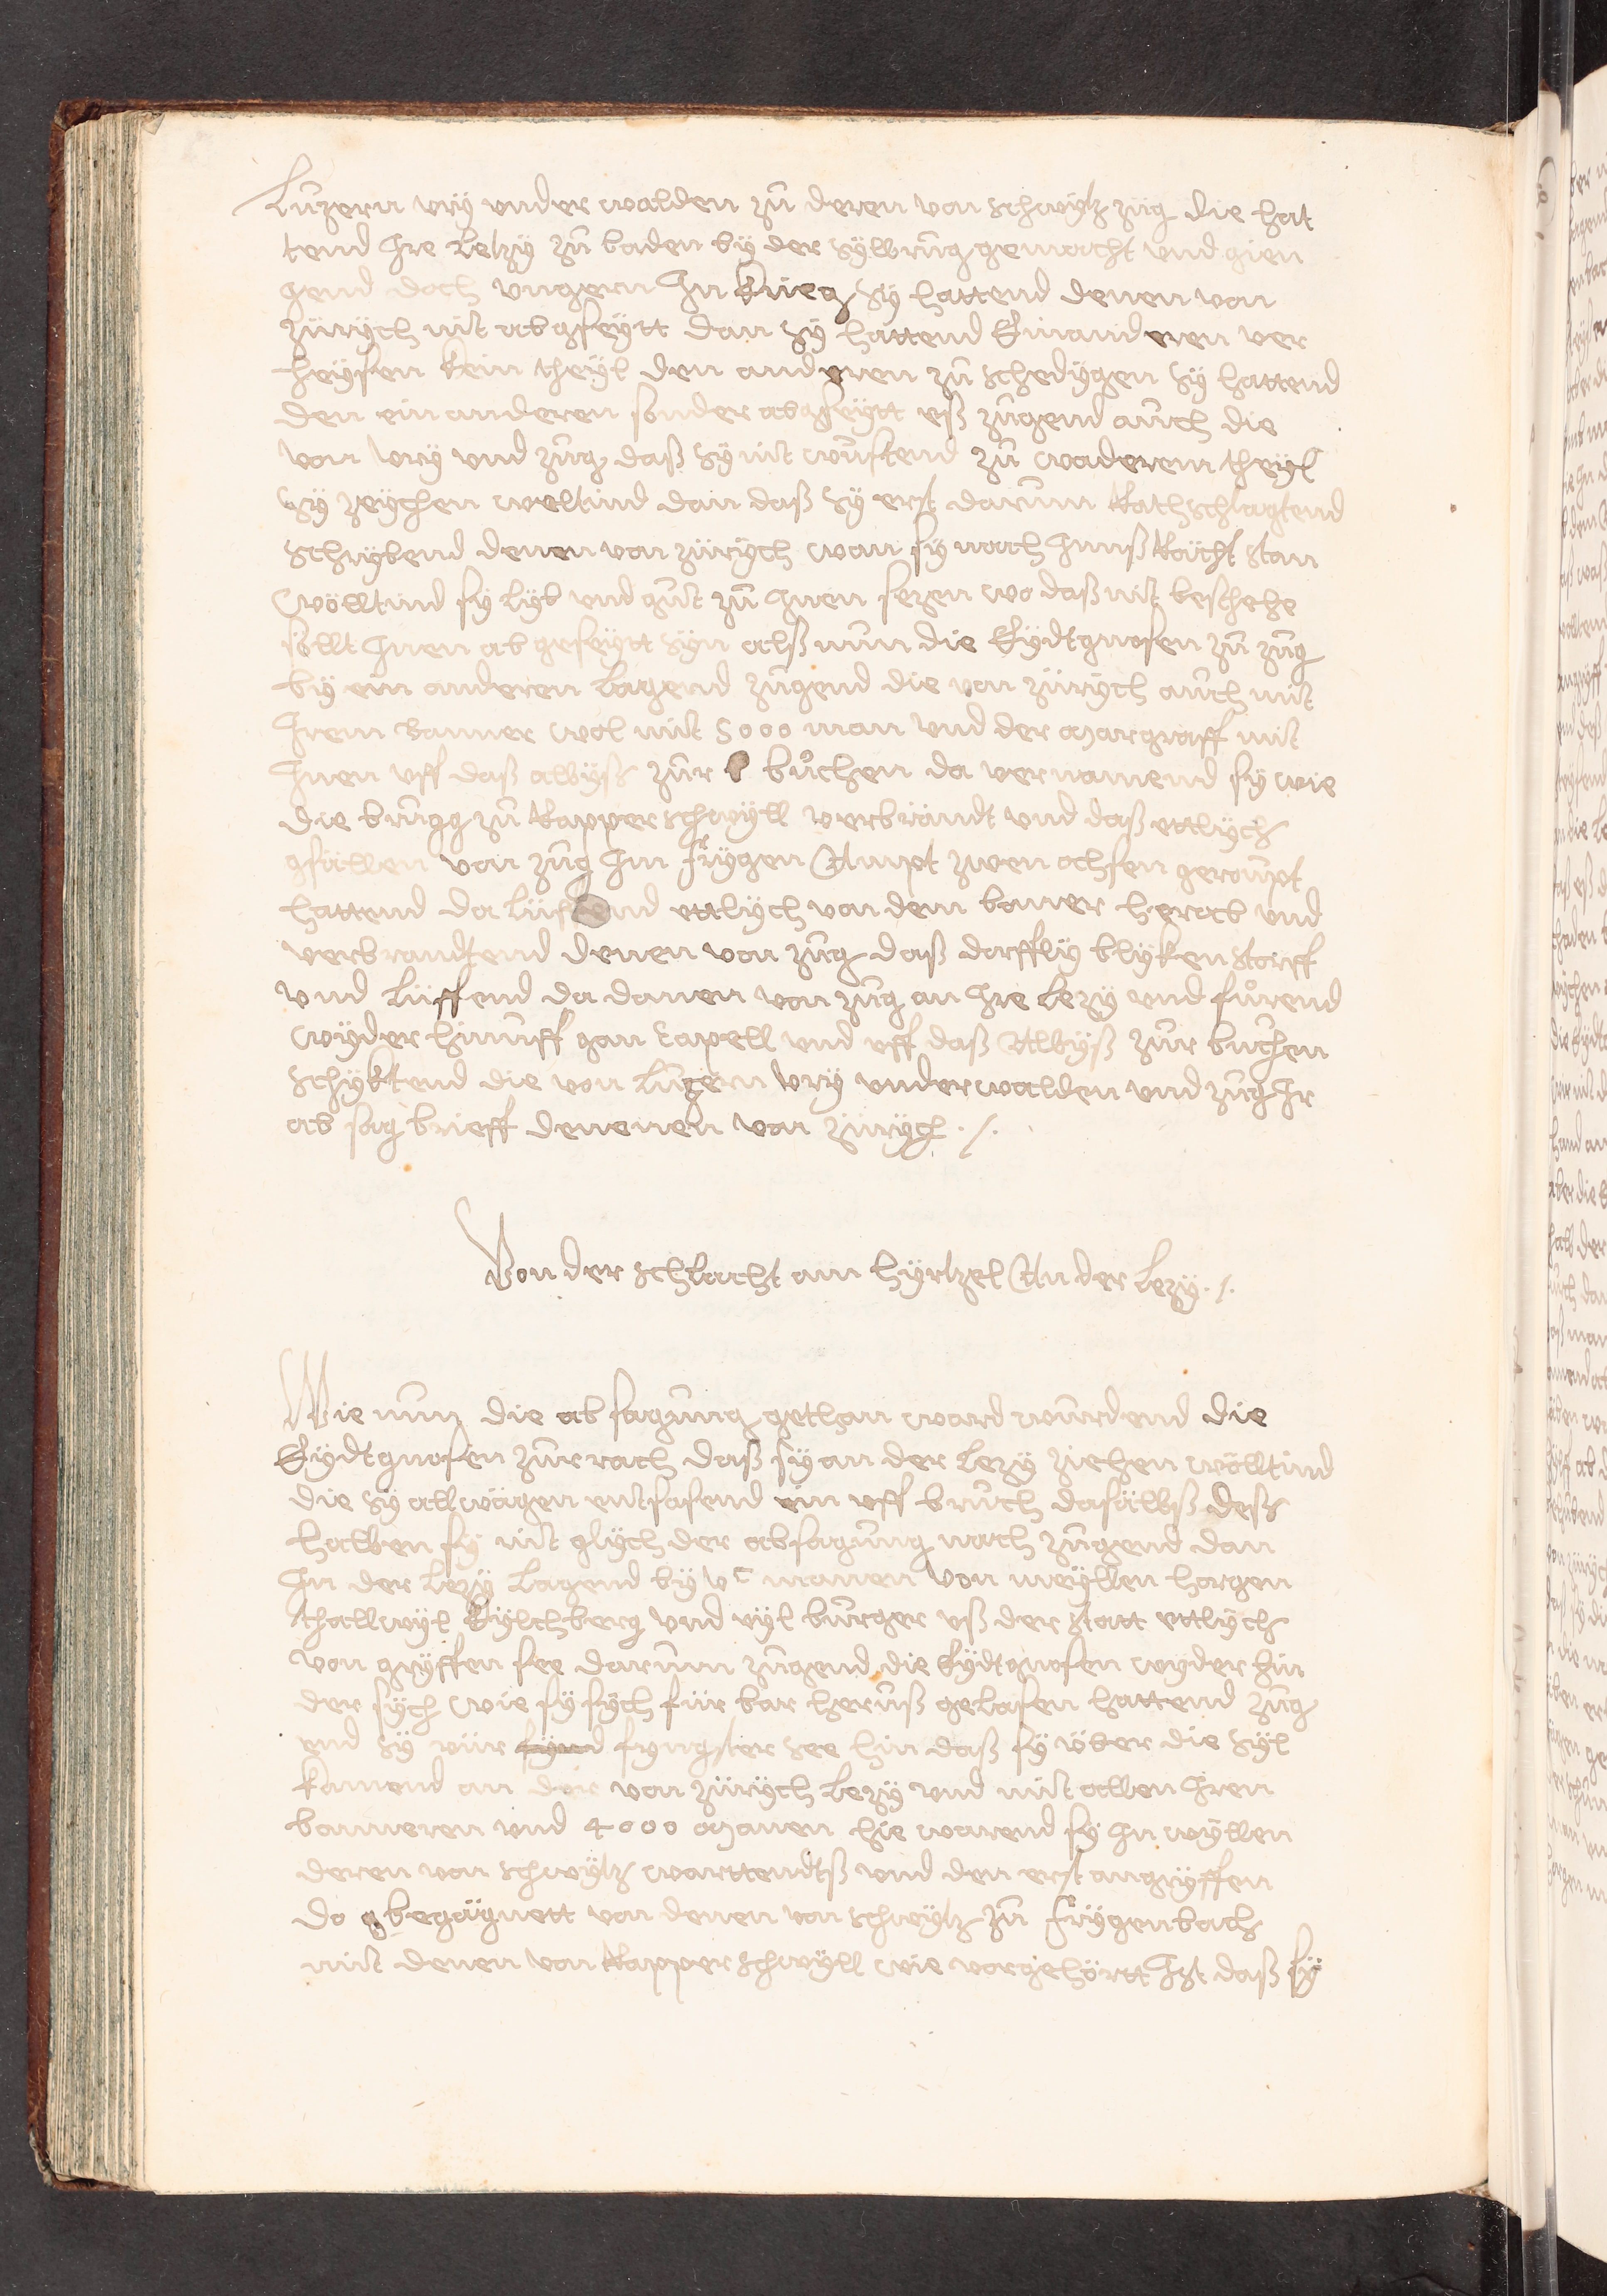 Luzern vry vnder walden zů deren von schwytz zug die hat
tend Ire Letzy zů baden by der Sylbrug gemacht vnd gien
gend doch vngern In krieg Sy hattend denen von
Zürÿch nit abgseytt dan Sy hattend Einanderen ver
heyssen kein theyl den anderen zů schedygen Sy hattend
den ein anderen sonder abgseytt eß zugend auch die
von vry vnd zug daß Sy nit wustend zů wederem theyl
Sy zeychen weltind dan daß Sy erst darum Rathschlagtend
Schrybend denen von zürych wan sy nach Innß Rächt stan
wölltind sy Lyb vnd gut zů Inen sezen wo daß nit beschehe
sollt Inen ab geseytt syn alß nun die Eydtgnosen zů zug
by ein anderen Lagend zugend die von zürych auch mit
Irem Banner wol mit 5000 man vnd der Margraff mit
Inen vff daß albyß zur bůchen da vernamend sy wie
die brugg zů Rapperschwyll verbrändt vnd daß ettlych
gsällen von zug Im frygen Ampt zwen ochsen geroupt
hattend da lüffend ettlych von dem baner herab vnd
verbrandtend denen von zug daß dorffly blykenstorff
vnd Lüffend da danen von zug an Ire Lezy vnd fůrend
wyder hinuff gan Capell vnd vff daß Albyß zur buchen
Schyktend die von Luzern vry vnderwalden vnd zug Ir
ab sag brieff denenen von zürych ./.
Von der Schlacht am hyrtzel An der Lezy ./.
Wie nun die absagung gethan ward wurdend die
Eydtgnosen zur rach daß sy an der Lezy ziehen wölltind
die Sy allwägen entsasend ein vff bruch dasälbß deß
halben sy nit glych der absagung nach zugend dan
In der Lezy Lagend by vc manen von meyllen horgen
thallwyl kylchberg vnd vyl burger vß der statt ettlych
von gryffen see darum zugend die Eydtgnosen wyder hin
der sych wie sy sych für bar heruß gelasen hattend zug
vnd Sy für fynd fyngster see hin daß sy über die Syl
kamend an der von zürych Lezy vnd mit allen Iren
banneren vnd 4000 Manen hie warend sy In wyllen
deren von schwytz warttendtß vnd den erst angryffen
do g begägnett von denen von schwytz zů frygenbach
mit denen von Rapperschwyll wie vorgehörtt Ist daß sy